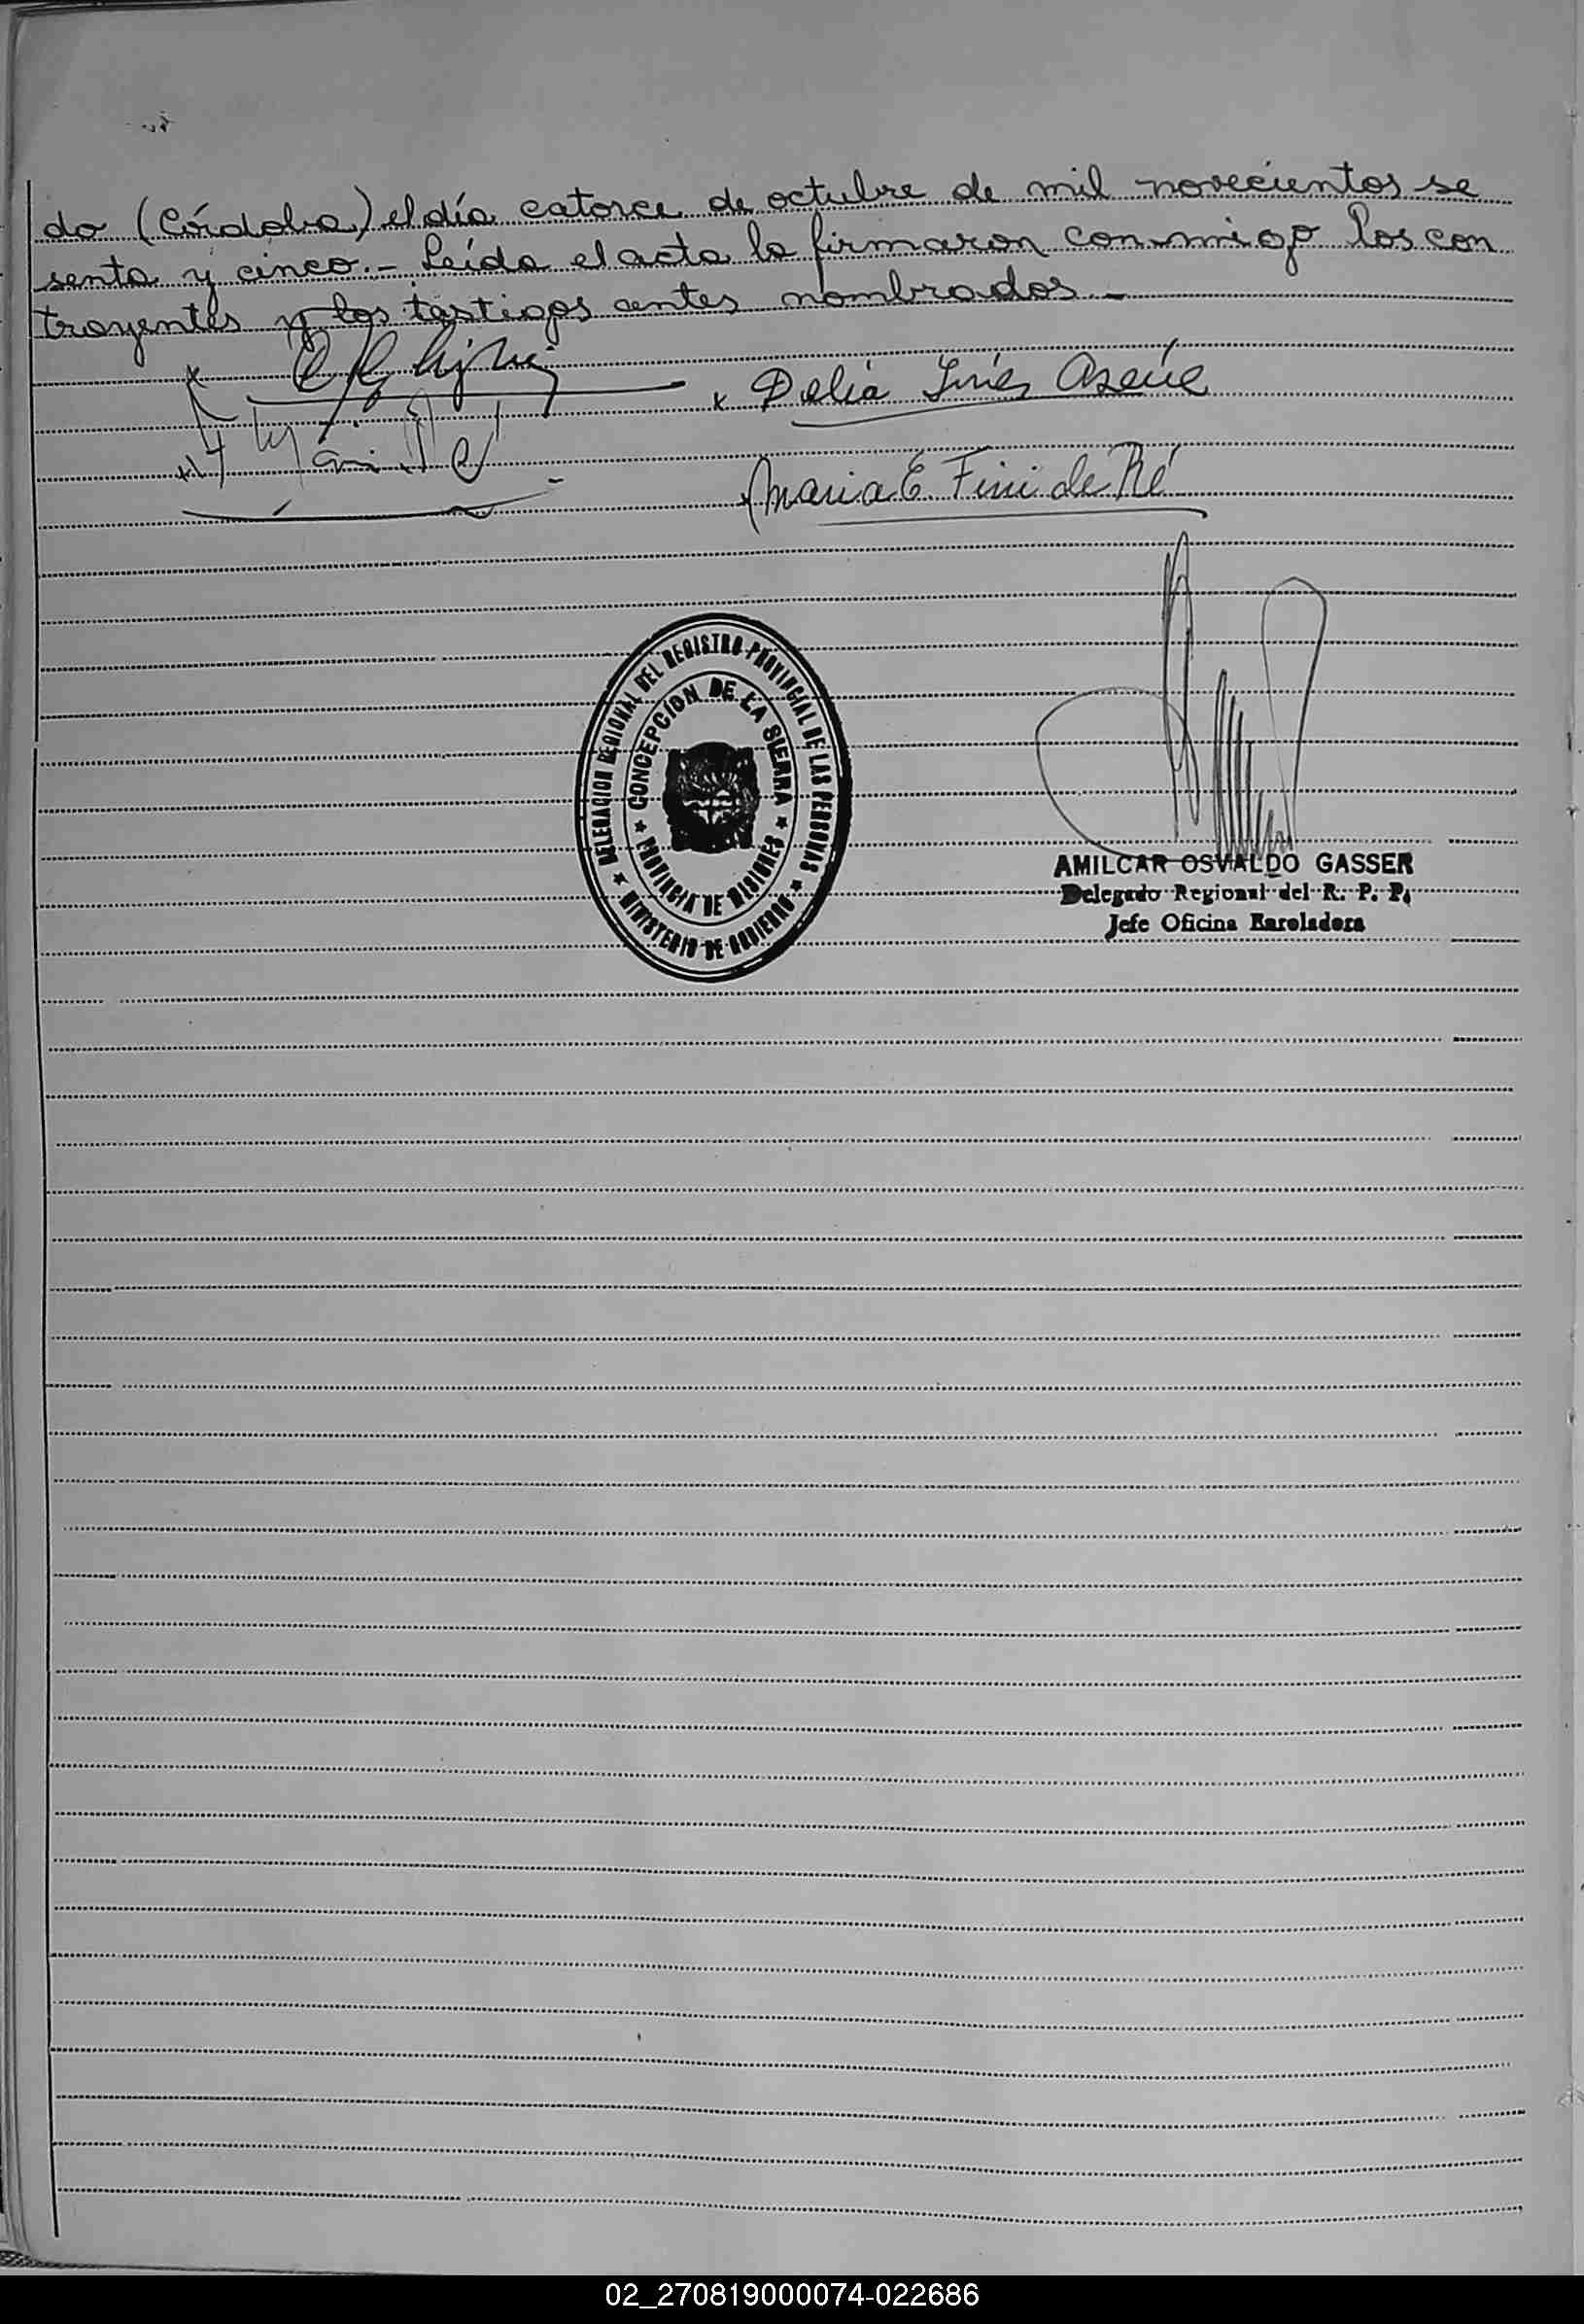 do (Córdoba) el día catorce de octubre de mil novecientos se
senta y cinco.- Leída el acta la firmaron conmigo los con
trayentes y los testigos antes nombrados.-
x Delia Inés
Maria E. Fini de Ré
DELEGACION REGIONAL DEL REGISTRO PROVINCIAL DE LAS PERSONAS
★ MINISTERIO DE GOBIERNO ★
CONCEPCION DE LA SIERRA
★ PROVINCIA DE MISIONES ★
AMILCAR OSVALDO GASSER
Delegado Regional del R. P. P.
Jefe Oficina Enroladora
02_270819000074-022686